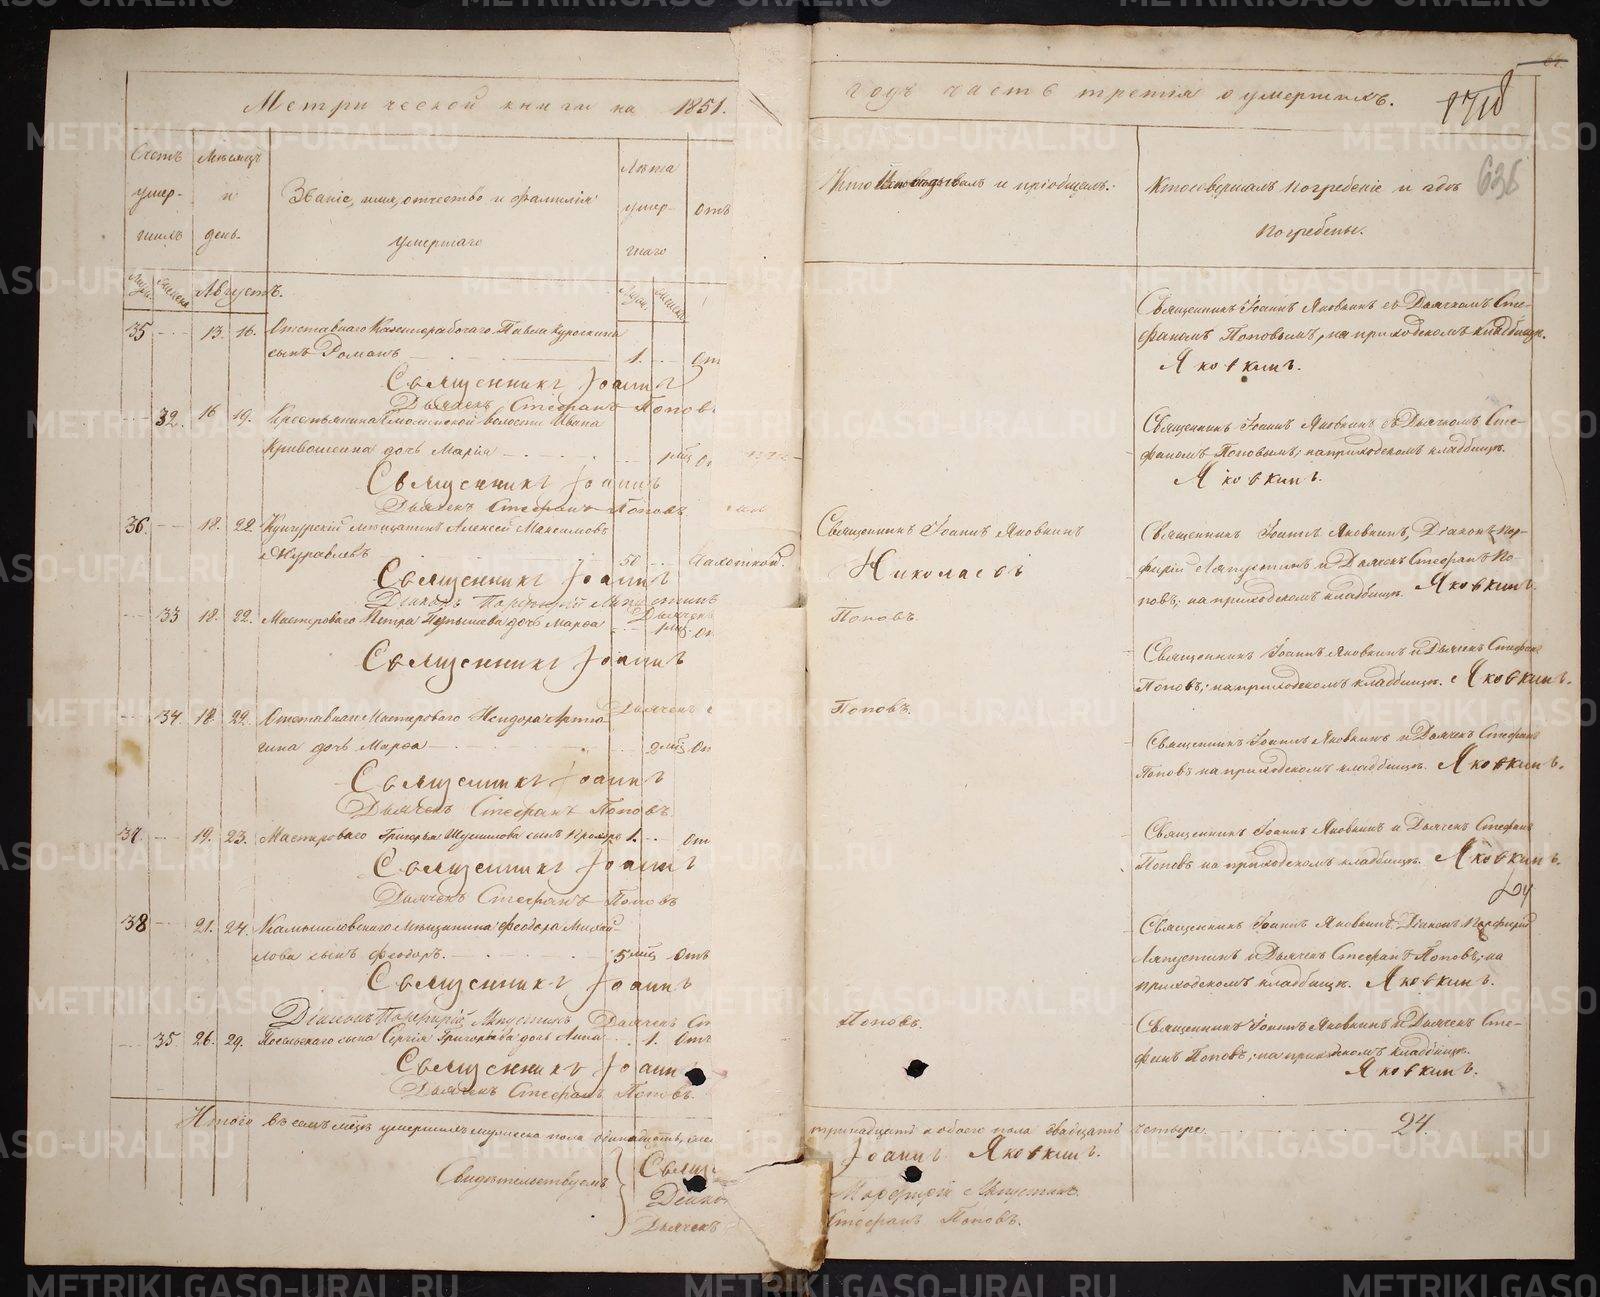 Метрической книги на 1851.
годъ часть третія о умершихъ.
1718
636
Счетъ умер- шихъ
Мѣсяцъ и день.
Званіе, имя, отчество и фамилія умершаго
Лѣта умер- шаго
Отъ
Кто исповѣдывалъ и пріобщалъ.
Кто совершалъ погребеніе и гдѣ погребены.
Августъ.
35 13. 16. Отставнаго Павла Курочкина
сынъ Романъ 1. От
Священникъ Іоаннъ
Дьячекъ Стефанъ Поповъ
Священникъ Іоаннъ Яковкинъ съ Дьячкомъ Сте-
фаномъ Поповымъ, на приходскомъ кладбищѣ.
Яковкинъ.
32. 16 19. Крестьянина волости Ивана
Кривошеина дочь Марія
Священникъ Іоаннъ
Дьячекъ Стефанъ Поповъ
Священникъ Іоаннъ Яковкинъ съ Дьячкомъ Сте-
фаномъ Поповымъ; на приходскомъ кладбищѣ.
Яковкинъ.
36. 18. 22. Кунгурскій мѣщанинъ Алексѣй Максимовъ
Журавлевъ 50 Чахоткой.
Священникъ Іоаннъ
Діаконъ Порфирій Ляпустинъ
Дьячекъ
Священникъ Іоаннъ Яковкинъ
Николаевъ
Поповъ.
Священникъ Іоаннъ Яковкинъ, Діаконъ Пор-
фирій Ляпустинъ и Дьячекъ Стефанъ По-
повъ; на приходскомъ кладбищѣ. Яковкинъ.
33 18. 22. Мастероваго Петра дочь Марѳа
Священникъ Іоаннъ
Дьячекъ С
Поповъ.
Священникъ Іоаннъ Яковкинъ и Дьячекъ Стефанъ
Поповъ; на приходскомъ кладбищѣ. Яковкинъ.
34. 18. 22. Мастероваго Исидора
дочь Марѳа
Священникъ Іоаннъ
Дьячекъ Стефанъ Поповъ.
Священникъ Іоаннъ Яковкинъ и Дьячекъ Стефанъ
Поповъ на приходскомъ кладбищѣ. Яковкинъ.
37. 19. 23. Мастероваго Григорья сынъ 1. От
Священникъ Іоаннъ
Дьячекъ Стефанъ Поповъ
Священникъ Іоаннъ Яковкинъ и Дьячекъ Стефанъ
Поповъ на приходскомъ кладбищѣ. Яковкинъ.
38 21. 24. Камышловскаго мѣщанина Феодора Михай-
лова сынъ Феодоръ. 5 мѣц Отъ
Священникъ Іоаннъ
Діаконъ Порфирій Ляпустинъ Дьячекъ Ст
Поповъ.
Священникъ Іоаннъ Яковкинъ, Діаконъ Порфирій
Ляпустинъ и Дьячекъ Стефанъ Поповъ; на
приходскомъ кладбищѣ. Яковкинъ.
35 26. 29. сына Сергія Григорьева дочь Анна 1. Отъ
Священникъ Іоаннъ
Дьячекъ Стефанъ Поповъ.
Священникъ Іоаннъ Яковкинъ и Дьячекъ Сте-
фанъ Поповъ; на приходскомъ кладбищѣ.
Яковкинъ.
Итого въ семъ мѣцѣ умершихъ мужеска пола одинадцать, же
тринадцать обоего пола двадцать четыре. 24.
Свидѣтельствуемъ
Іоаннъ Яковкинъ.
Порфирій Ляпустинъ.
Дьячекъ
Стефанъ Поповъ.
METRIKI.GASO-URAL.RU